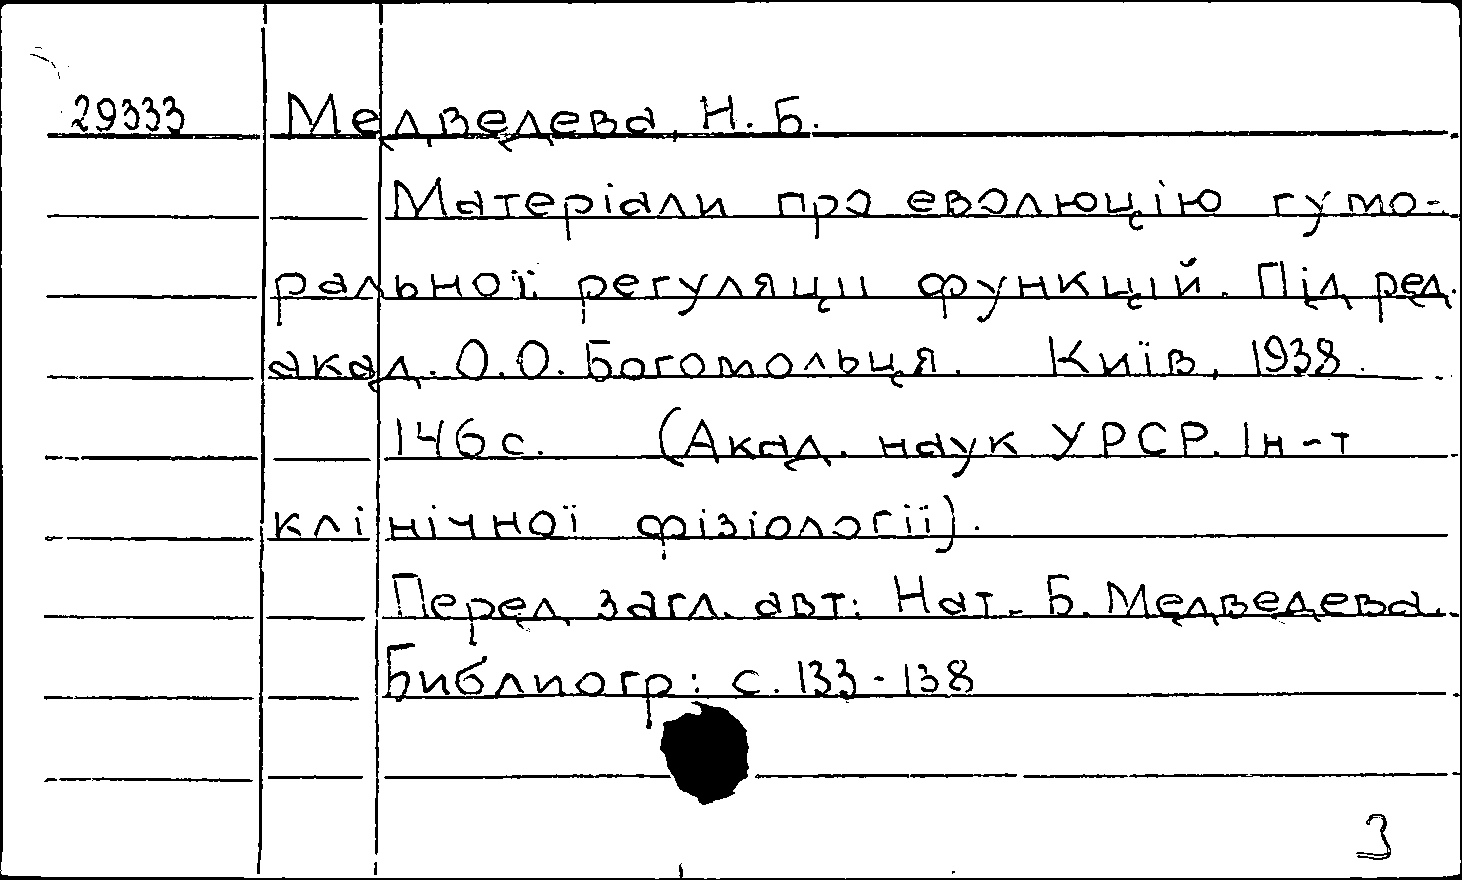 29333 Медведева, Н. Б.
Матеріали про еволюцію гумо-
ральної регуляции функцій. Під ред.
акад. О.О. Богомольця. Київ, 1938.
146 с. (Акад. наук УРСР. Ін-т
клінічної фізіології).
Перед загл. авт: Нат. Б. Медведева.
Библиогр: с. 133-138
3